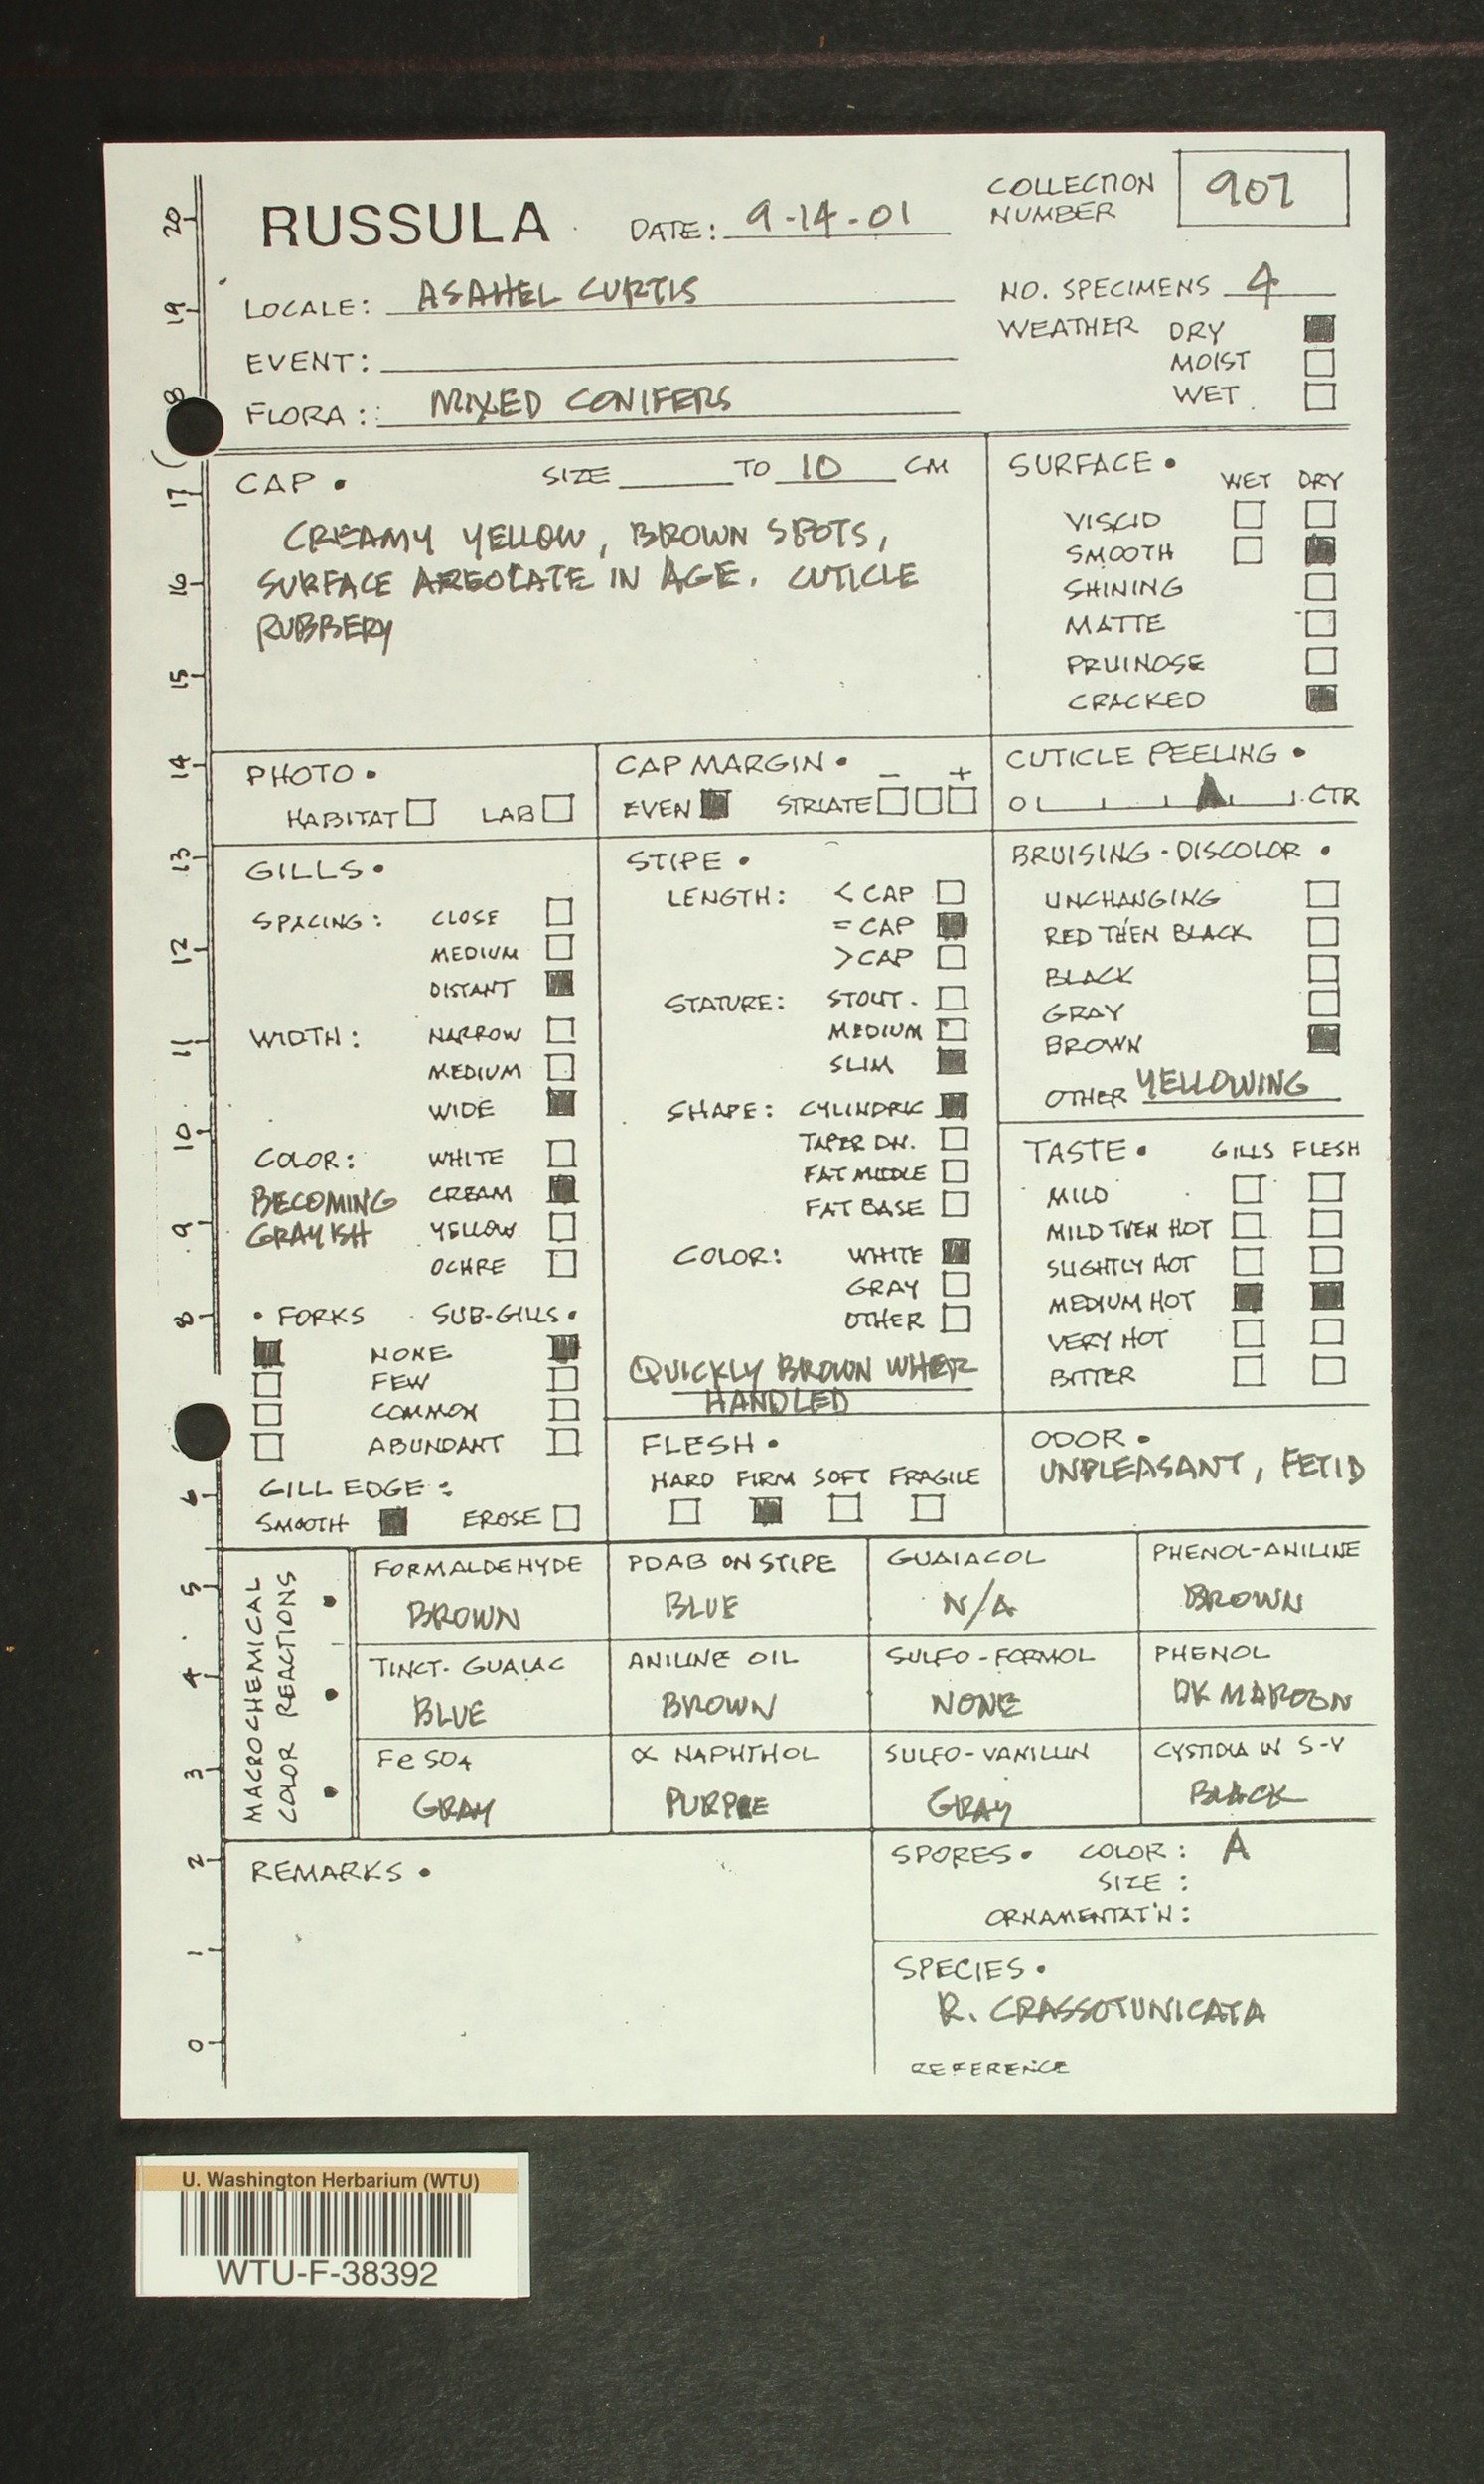 RUSSULA DATE: 9-14-01 COLLECTION NUMBER 907
LOCALE: ASAHEL CURTIS NO. SPECIMENS 4
WEATHER DRY
EVENT: MOIST
WET
FLORA: MIXED CONIFERS
CAP • SIZE TO 10 CM
CREAMY YELLOW, BROWN SPOTS,
SURFACE AREOLATE IN AGE. CUTICLE
RUBBERY
SURFACE •
WET DRY
VISCID
SMOOTH
SHINING
MATTE
PRUINOSE
CRACKED
PHOTO •
HABITAT LAB
CAP MARGIN • - +
EVEN STRIATE
CUTICLE PEELING •
0 CTR
GILLS •
SPACING: CLOSE
MEDIUM
DISTANT
WIDTH: NARROW
MEDIUM
WIDE
COLOR: WHITE
BECOMING CREAM
GRAYISH YELLOW
OCHRE
• FORKS SUB-GILLS •
NONE
FEW
COMMON
ABUNDANT
GILL EDGE:
SMOOTH EROSE
STIPE •
LENGTH: < CAP
= CAP
> CAP
STATURE: STOUT
MEDIUM
SLIM
SHAPE: CYLINDRIC
TAPER DN.
FAT MIDDLE
FAT BASE
COLOR: WHITE
GRAY
OTHER
QUICKLY BROWN WHEN
HANDLED
FLESH •
HARD FIRM SOFT FRAGILE
BRUISING • DISCOLOR •
UNCHANGING
RED THEN BLACK
BLACK
GRAY
BROWN
OTHER YELLOWING
TASTE • GILLS FLESH
MILD
MILD THEN HOT
SLIGHTLY HOT
MEDIUM HOT
VERY HOT
BITTER
ODOR •
UNPLEASANT, FETID
MACROCHEMICAL
COLOR REACTIONS
FORMALDEHYDE PDAB ON STIPE GUAIACOL PHENOL-ANILINE
BROWN BLUE N/A BROWN
TINCT. GUAIAC ANILINE OIL SULFO-FORMOL PHENOL
BLUE BROWN NONE DK MAROON
FeSO4 ∝ NAPHTHOL SULFO-VANILLIN CYSTIDIA IN S-V
GRAY PURPLE GRAY BLACK
REMARKS •
SPORES • COLOR: A
SIZE:
ORNAMENTAT'N:
SPECIES •
R. CRASSOTUNICATA
REFERENCE
20
19
8
17
16
15
14
13
12
11
10
9
8
6
5
4
3
2
1
0
U. Washington Herbarium (WTU)
WTU-F-38392